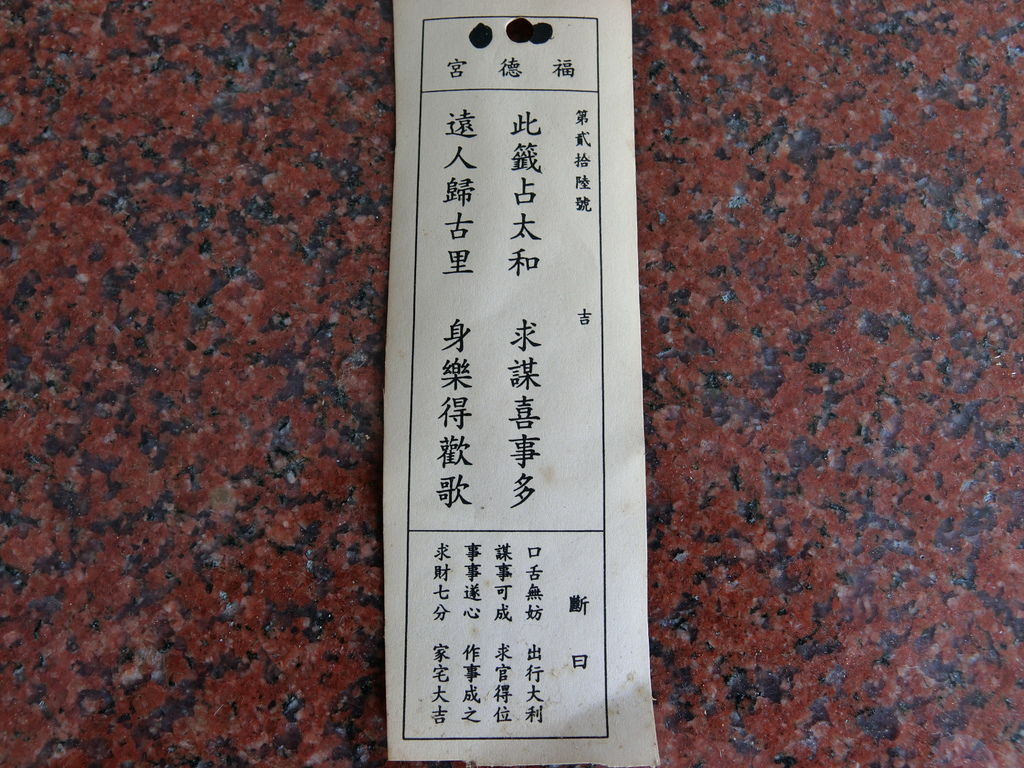 福德宮
第貳拾陸號 吉
此籤占太和 求謀喜事多
遠人歸古里 身樂得歡歌
斷曰
口舌無妨 出行大利
謀事可成 求官得位
事事遂心 作事成之
求財七分 家宅大吉